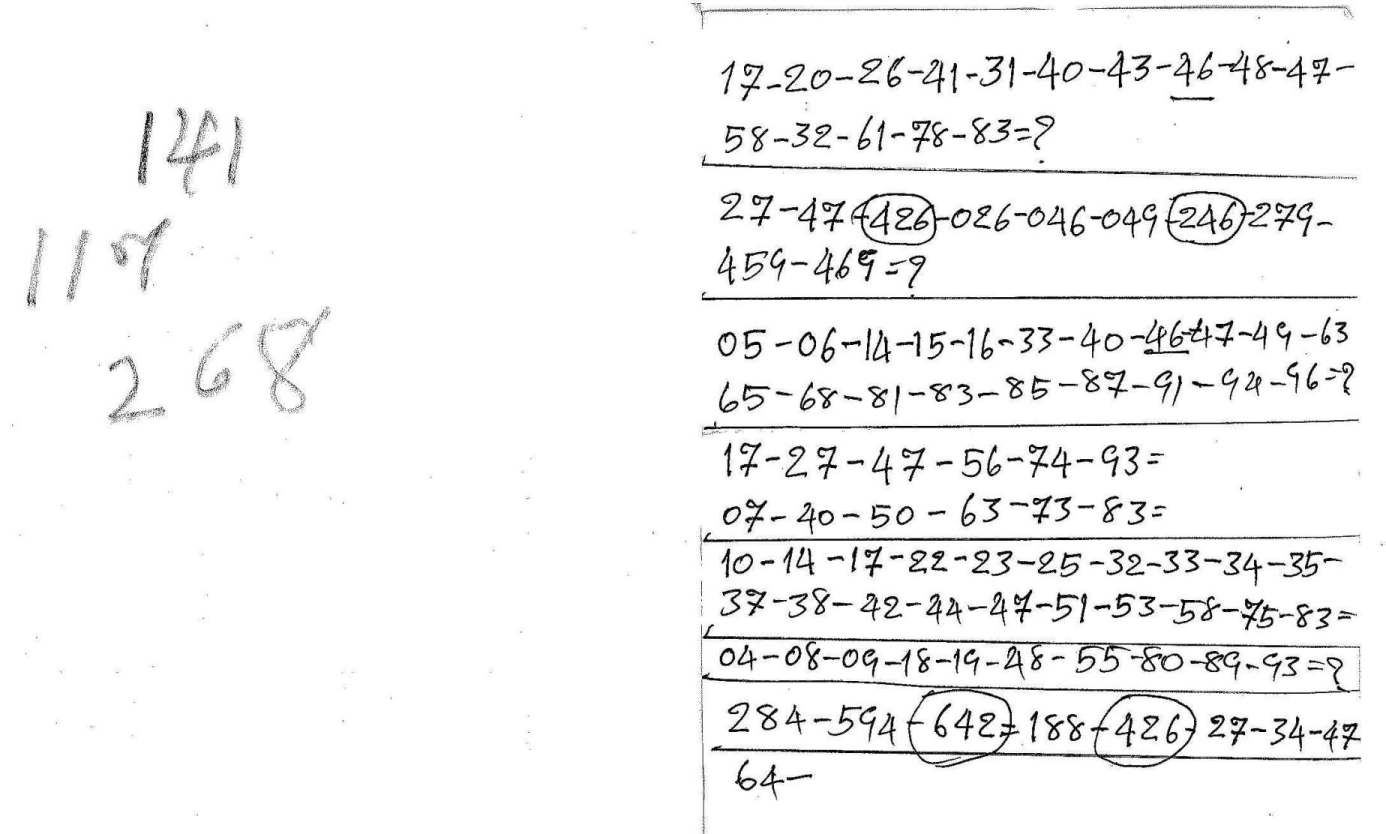 141
268
17-20-26-41-31-40-43-46-48-47-
58-32-61-78-83=?
27-47-426-026-046-049-246-279-
459-469=?
05-06-14-15-16-33-40-46-47-49-63
65-68-81-83-85-87-91-94-96=?
17-27-47-56-74-93=
07-40-50-63-73-83=
10-14-17-22-23-25-32-33-34-35-
37-38-42-44-47-51-53-58-75-83=
04-08-09-18-19-48-55-80-89-93=?
284-594-642-188-426-27-34-47
64-